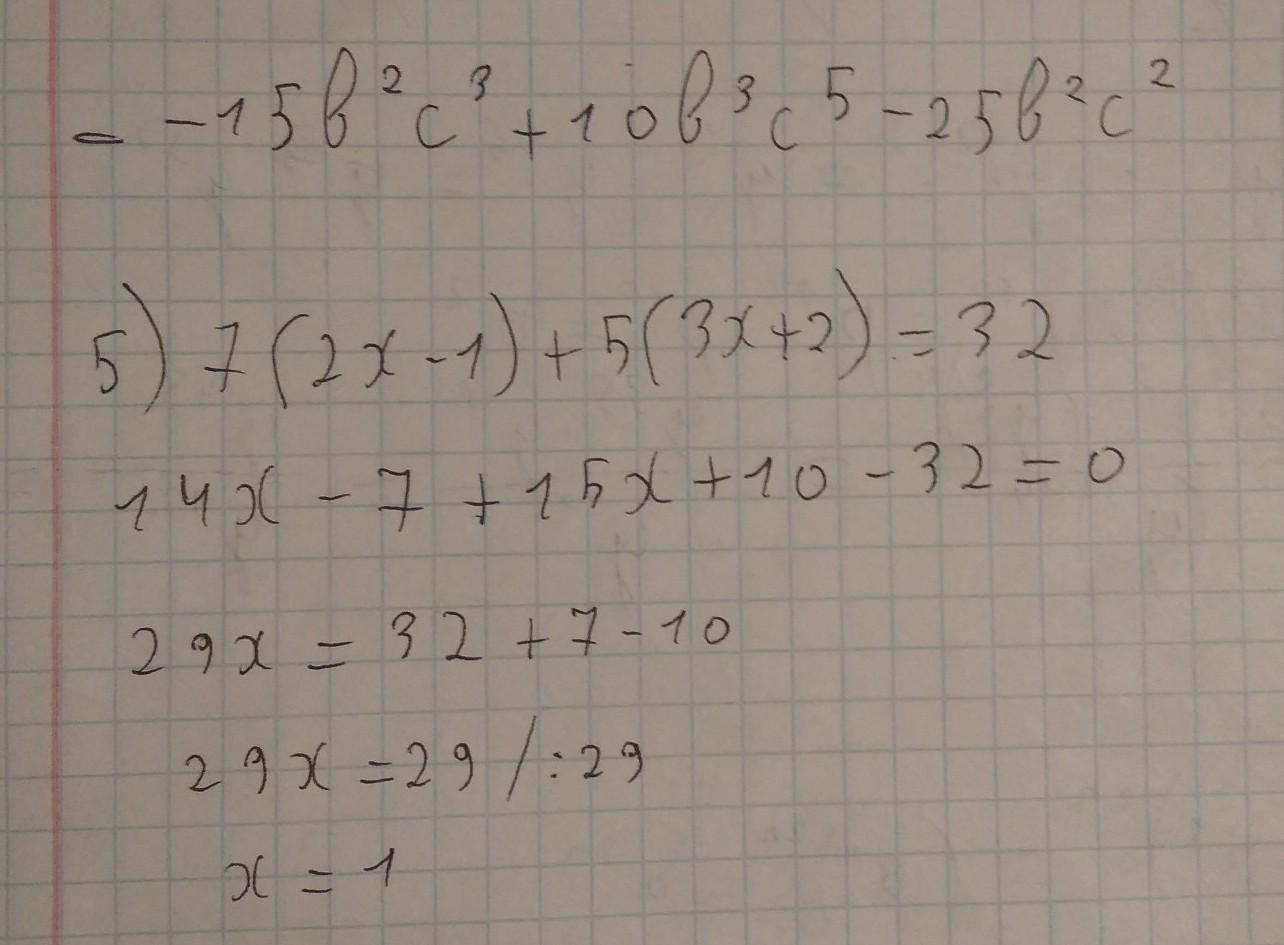 = -15b²c³ + 10b³c⁵ - 25b²c²
5) 7(2x-1)+5(3x+2)=32
14x - 7 + 15x + 10 - 32 = 0
29x = 32 + 7 - 10
29x = 29 /:29
x = 1